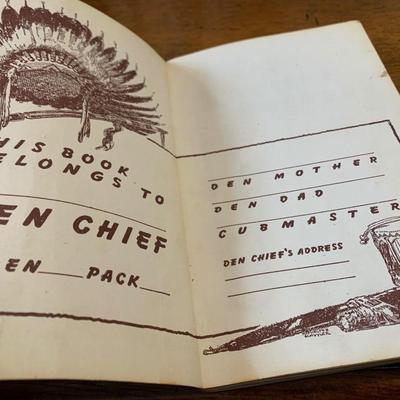 HIS BOOK
ELONGS TO
EN CHIEF
EN___ PACK___
DEN MOTHER
DEN DAD
CUBMASTER
DEN CHIEF'S ADDRESS